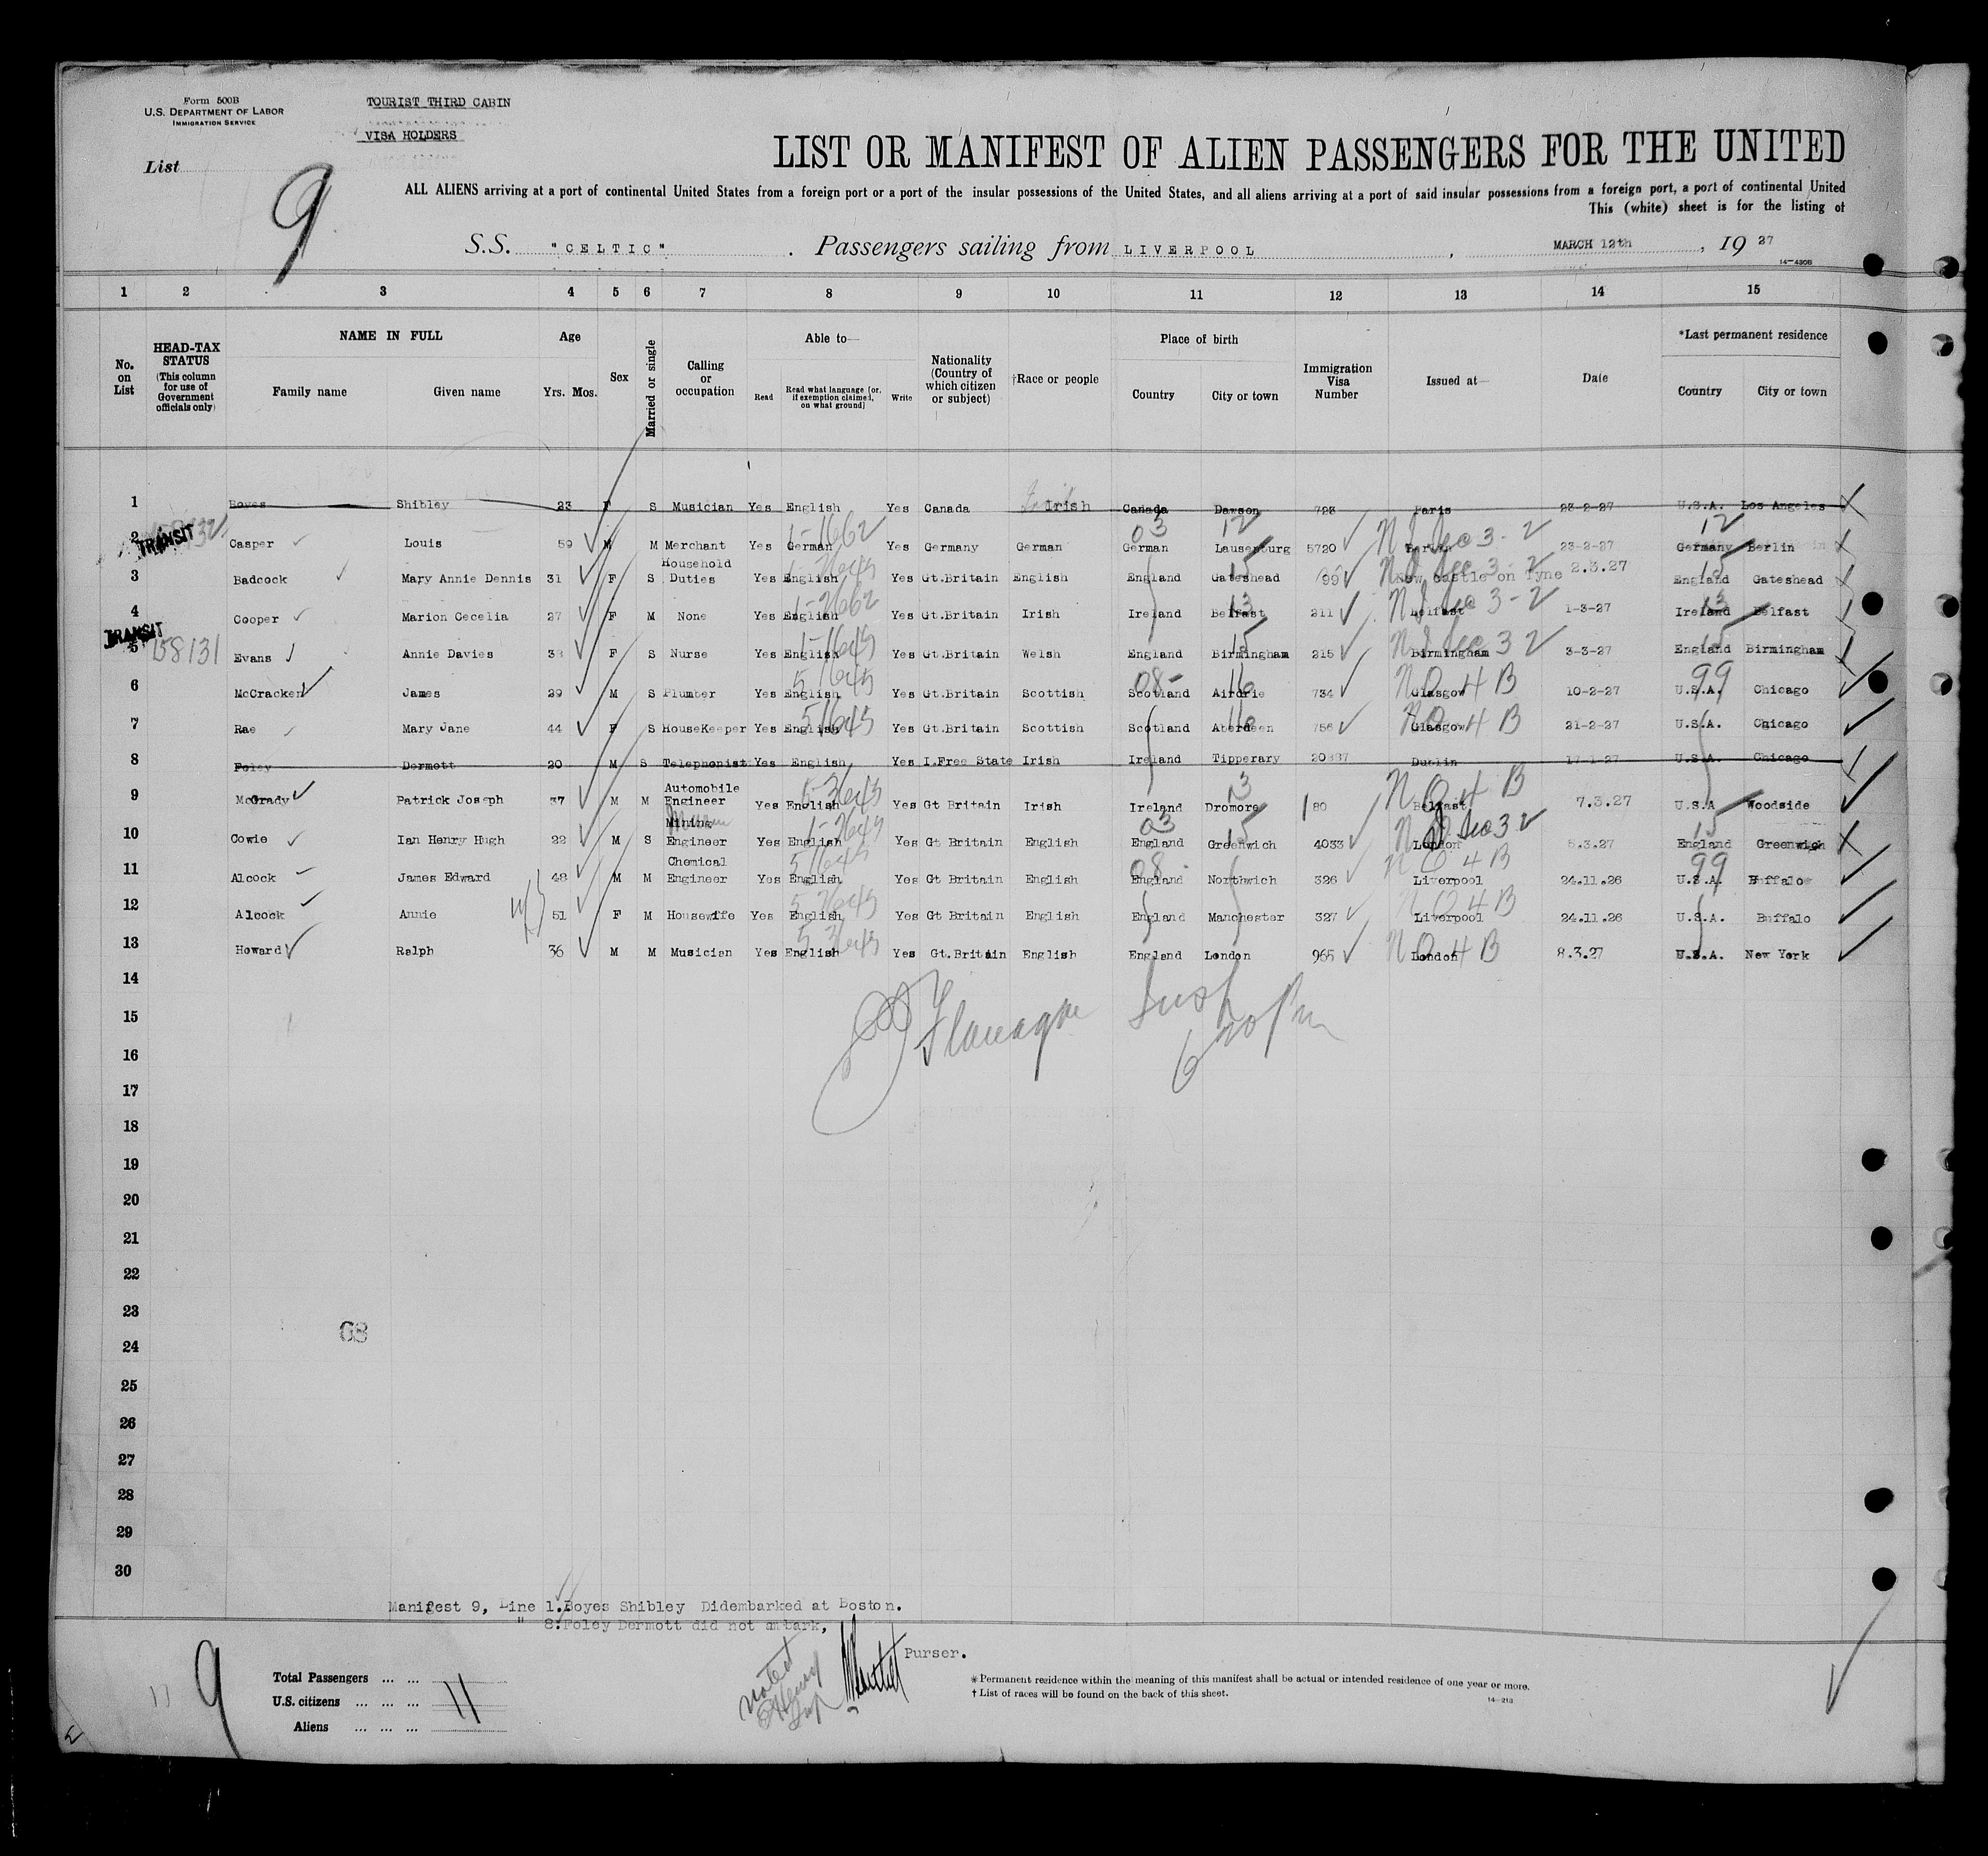 Form 500B
U.S. DEPARTMENT OF LABOR
IMMIGRATION SERVICE
TOURIST THIRD CABIN
VISA HOLDERS
List
9
LIST OR MANIFEST OF ALIEN PASSENGERS FOR THE UNITED
ALL ALIENS arriving at a port of continental United States from a foreign port or a port of the insular possessions of the United States, and all aliens arriving at a port of said insular possessions from a foreign port, a port of continental United
This (white) sheet is for the listing of
S.S. "CELTIC" . Passengers sailing from LIVERPOOL , MARCH 12th , 19 27
14-430B
1 2 3 4 5 6 7 8 9 10 11 12 13 14 15
No. on List
HEAD-TAX STATUS (This column for use of Government officials only)
NAME IN FULL
Family name Given name
Age
Yrs. Mos.
Sex
Married or single
Calling or occupation
Able to—
Read Read what language [or, if exemption claimed, on what ground] Write
Nationality (Country of which citizen or subject)
†Race or people
Place of birth
Country City or town
Immigration Visa Number
Issued at—
Date
*Last permanent residence
Country City or town
1 Boyes Shibley 23 F S Musician Yes English Yes Canada Irish Canada Dawson 723 Paris 23-2-27 U.S.A. Los Angeles
TRANSIT
03 12 1-1662 12
2 Casper Louis 59 M M Merchant Yes German Yes Germany German German Lausenburg 5720 Berlin 23-2-27 Germany Berlin
3 Badcock Mary Annie Dennis 31 F S Household Duties Yes English Yes Gt.Britain English England Gateshead 99 New Castle on Tyne 2.3.27 England Gateshead
4 Cooper Marion Cecelia 27 F M None Yes English Yes Gt.Britain Irish Ireland Belfast 211 Belfast 1-3-27 Ireland Belfast
TRANSIT
158131
5 Evans Annie Davies 33 F S Nurse Yes English Yes Gt.Britain Welsh England Birmingham 215 Birmingham 3-3-27 England Birmingham
08- 16 N Q 4 B 99
6 McCracken James 29 M S Plumber Yes English Yes Gt.Britain Scottish Scotland Airdrie 734 Glasgow 10-2-27 U.S.A. Chicago
7 Rae Mary Jane 44 F S HouseKeeper Yes English Yes Gt.Britain Scottish Scotland Aberdeen 756 Glasgow 21-2-27 U.S.A. Chicago
8 Foley Dermott 20 M S Telephonist Yes English Yes I.Free State Irish Ireland Tipperary Dublin 17-1-27 U.S.A. Chicago
9 McGrady Patrick Joseph 37 M M Automobile Engineer Yes English Yes Gt Britain Irish Ireland Dromore 180 Belfast 7.3.27 U.S.A Woodside
10 Cowie Ian Henry Hugh 22 M S Mining Engineer Yes English Yes Gt Britain English England Greenwich 4033 London 5.3.27 England Greenwich
11 Alcock James Edward 48 M M Chemical Engineer Yes English Yes Gt Britain English England Northwich 326 Liverpool 24.11.26 U.S.A. Buffalo
12 Alcock Annie 51 F M Housewife Yes English Yes Gt Britain English England Manchester 327 Liverpool 24.11.26 U.S.A. Buffalo
13 Howard Ralph 36 M M Musician Yes English Yes Gt.Britain English England London 965 London 8.3.27 U.S.A. New York
14
Flanagan Insp
15
620 Pm
16
17
18
19
20
21
22
23
68
24
25
26
27
28
29
30
Manifest 9, Line 1.Boyes Shibley Didembarked at Boston.
" 8:Foley Dermott did not embark,
Purser.
noted
Insp
9
Total Passengers ... ...
U.S. citizens ... ... ...
Aliens ... ... ...
11
* Permanent residence within the meaning of this manifest shall be actual or intended residence of one year or more.
† List of races will be found on the back of this sheet.
14-213